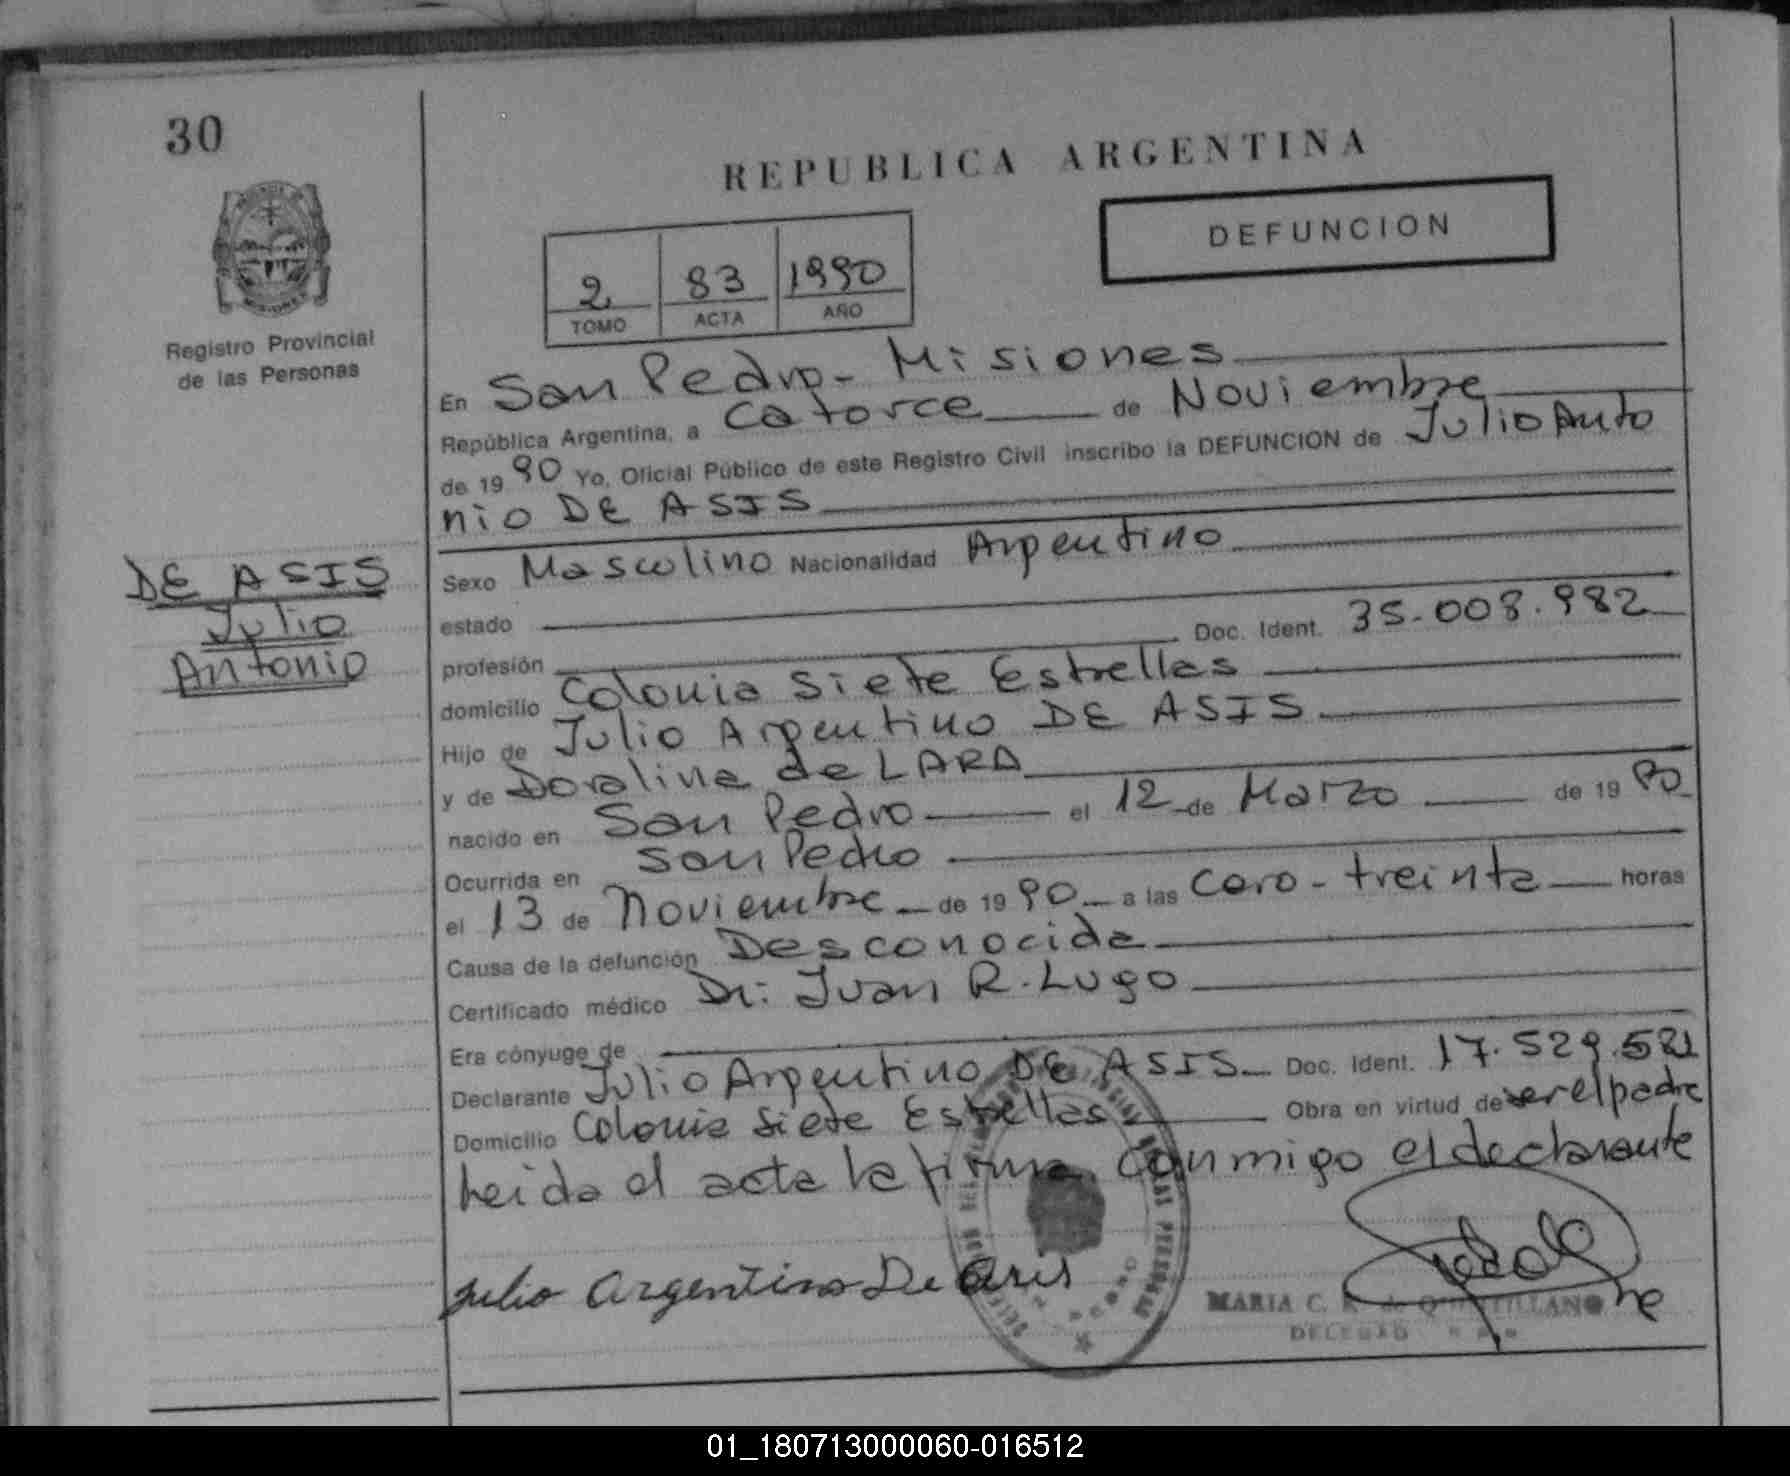 30
REPUBLICA ARGENTINA
DEFUNCION
2 83 1990
TOMO ACTA AÑO
Registro Provincial
de las Personas
En San Pedro - Misiones
República Argentina, a Catorce de Noviembre
de 1990 Yo, Oficial Público de este Registro Civil inscribo la DEFUNCION de Julio Anto
nio DE ASIS
DE ASIS
Julio
Antonio
Sexo Masculino Nacionalidad Argentino
estado
profesión Doc. Ident. 35.008.982
domicilio Colonia Siete Estrellas
Hijo de Julio Argentino DE ASIS
y de Doralina de LARA
nacido en San Pedro el 12 de Marzo de 1990
Ocurrida en San Pedro
el 13 de Noviembre de 1990 a las Cero - treinta horas
Causa de la defunción Desconocida
Certificado médico Dr: Juan R. Lugo
Era cónyuge de
Declarante Julio Argentino DE ASIS Doc. Ident. 17.529.521
Domicilio Colonia Siete Estrellas Obra en virtud de ser el padre
Leida el acta la firma conmigo el declarante
Julio Argentino De Asis
MARIA C. de
01_180713000060-016512